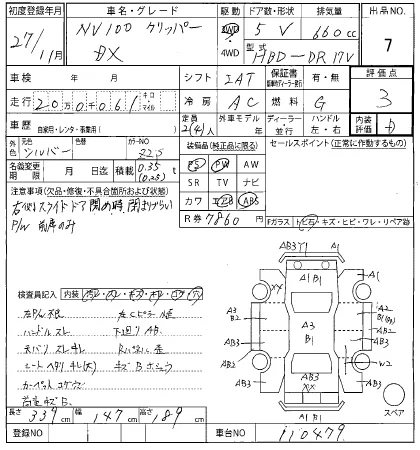 初度登録年月
27年
11月
車名・グレード
NV100 クリッパー
DX
駆動
2WD
4WD
ドア数・形状
5 V
排気量
660cc
型式
HBD-DR17V
出品NO.
7
車検 年 月
シフト IAT
保証書 有・無
評価点
3
走行 200,061 キロ・マイル
冷房 AC
燃料 G
車歴 自家用・レンタ・事業用( )
定員 2(4)人
外車モデル 年
ディーラー・並行
ハンドル 左・右
内装評価 D
外色 元色 シルバー カラーNO
装備品(純正品に限る)
PS PW AW
SR TV ナビ
カワ エアB ABS
R券 7860円
セールスポイント(正常に動作するもの)
名義変更期限 月 日迄 積載 0.35 t
注意事項(欠品・修復・不具合箇所および状態)
右側スライドドア閉め時、閉まりづらい
P/W 前席のみ
Fガラス トビ石・キズ・ヒビ・ワレ・リペア跡
検査員記入 内装 汚レ・スレ・キズ・キレ・コゲ・穴
ハンドルスレ 下廻り AB
天バリ スレキレ
シートヘタリ キレ(大) キズB ホシュウ
カーペット コゲ穴
AB3 Y1 AB3
A1 B1
A1
A1
XY
A3
B2
A3
B1
A2
B1
AB3
AB3
AB3
W2
AB3
AB3
XX
A1 B1
スペア
長さ 339cm 幅 147cm 高さ 189cm
登録NO
車台NO 110479